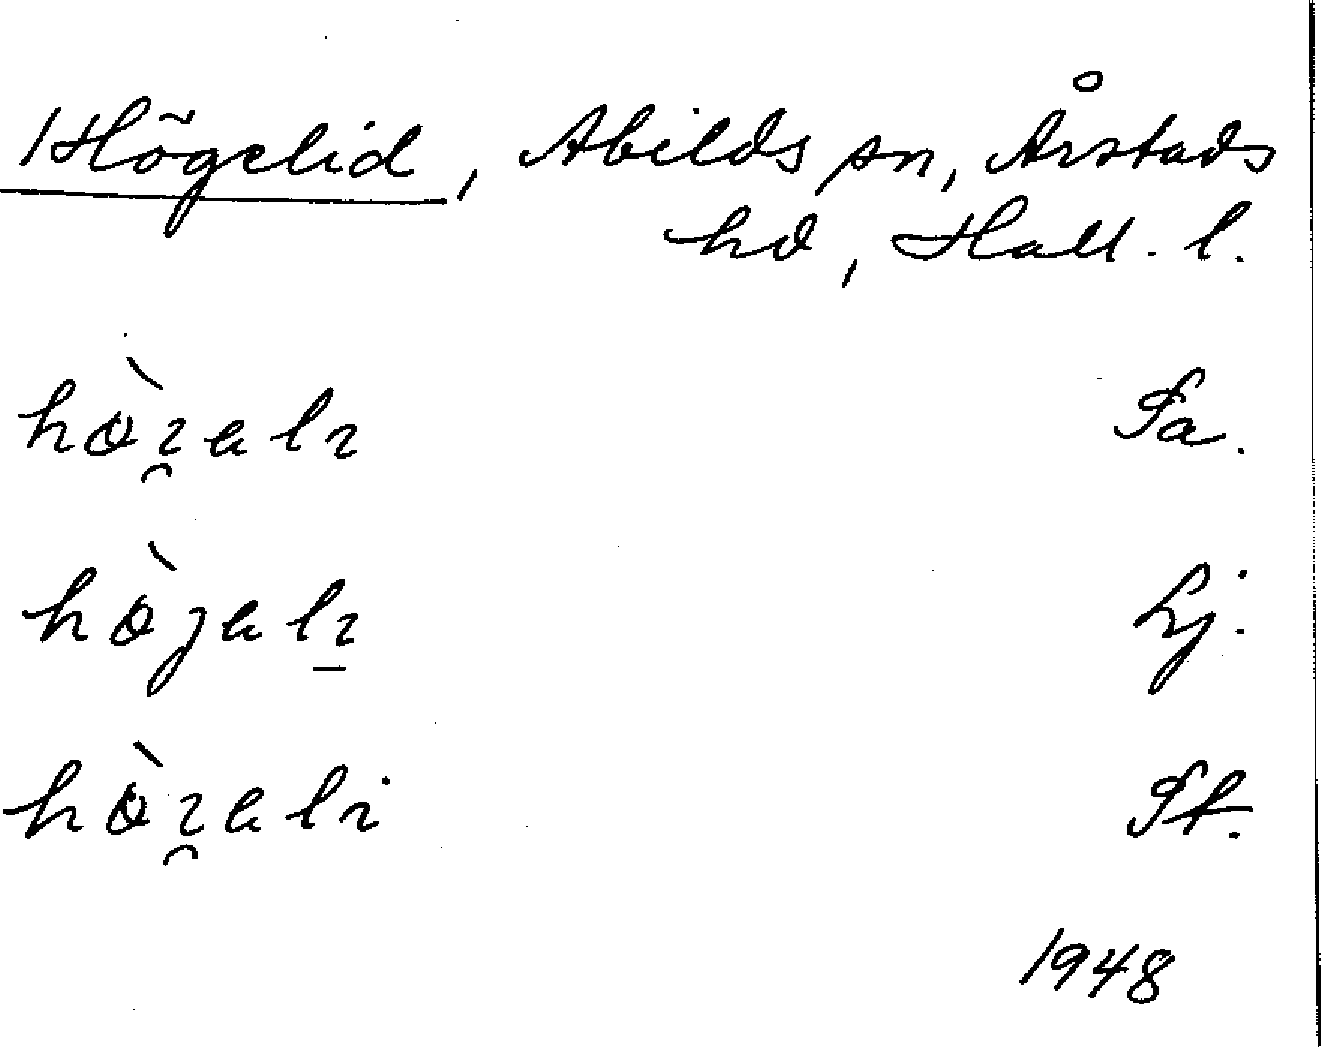 Högelid, Abilds sn, Årstads
hd, Hall. l.
hö̀ı̯ɐlı Sa.
hö̀jɐlı̱ Lj.
hö̀ı̯ɐli St.
1948